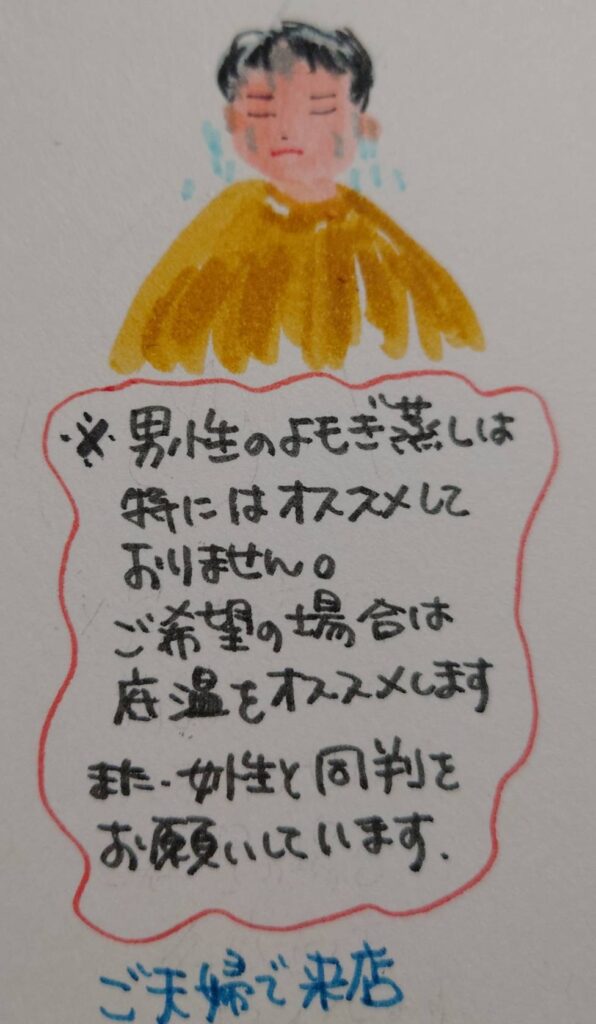 ※男性のよもぎ蒸しは
特にはオススメして
おりません。
ご希望の場合は
底温をオススメします
また、女性と同判を
お願いしています.
ご夫婦で来店